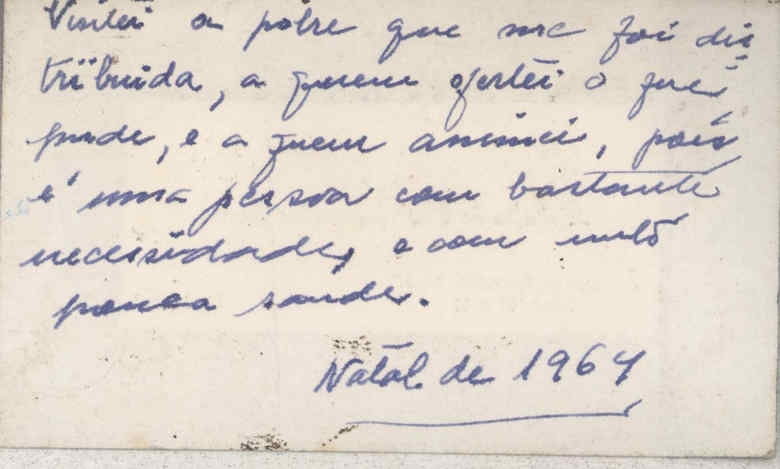 Visitei a pobre que me foi dis
tribuida, a quem ofertei o que
pude, e a quem animei, pois
é uma pessoa com bastante
necessidade, e com muito
pouca saude.
Natal de 1964